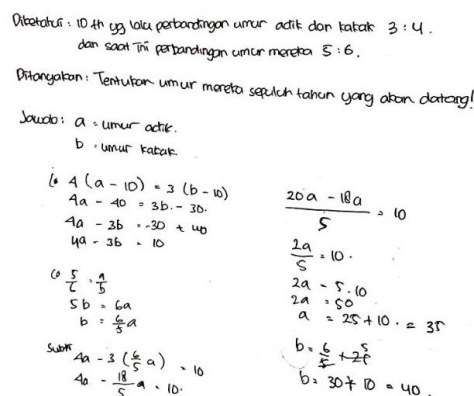 Diketahui : 10 th yg lalu perbandingan umur adik dan kakak 3 : 4.
dan saat ini perbandingan umur mereka 5 : 6.
Ditanyakan : Tentukan umur mereka sepuluh tahun yang akan datang!
Jawab : a = umur adik.
b = umur kakak.
4 (a - 10) = 3 (b - 10)
4a - 40 = 3b - 30.
4a - 3b = -30 + 40
4a - 3b = 10
5/6 = a/b
5b = 6a
b = 6/5 a
Subs
4a - 3 (6/5 a) = 10
4a - 18/5 a = 10.
20a - 18a / 5 = 10
2a / 5 = 10.
2a = 5.10
2a = 50
a = 25 + 10 = 35
b = 6/5 + 25
b = 30 + 10 = 40.